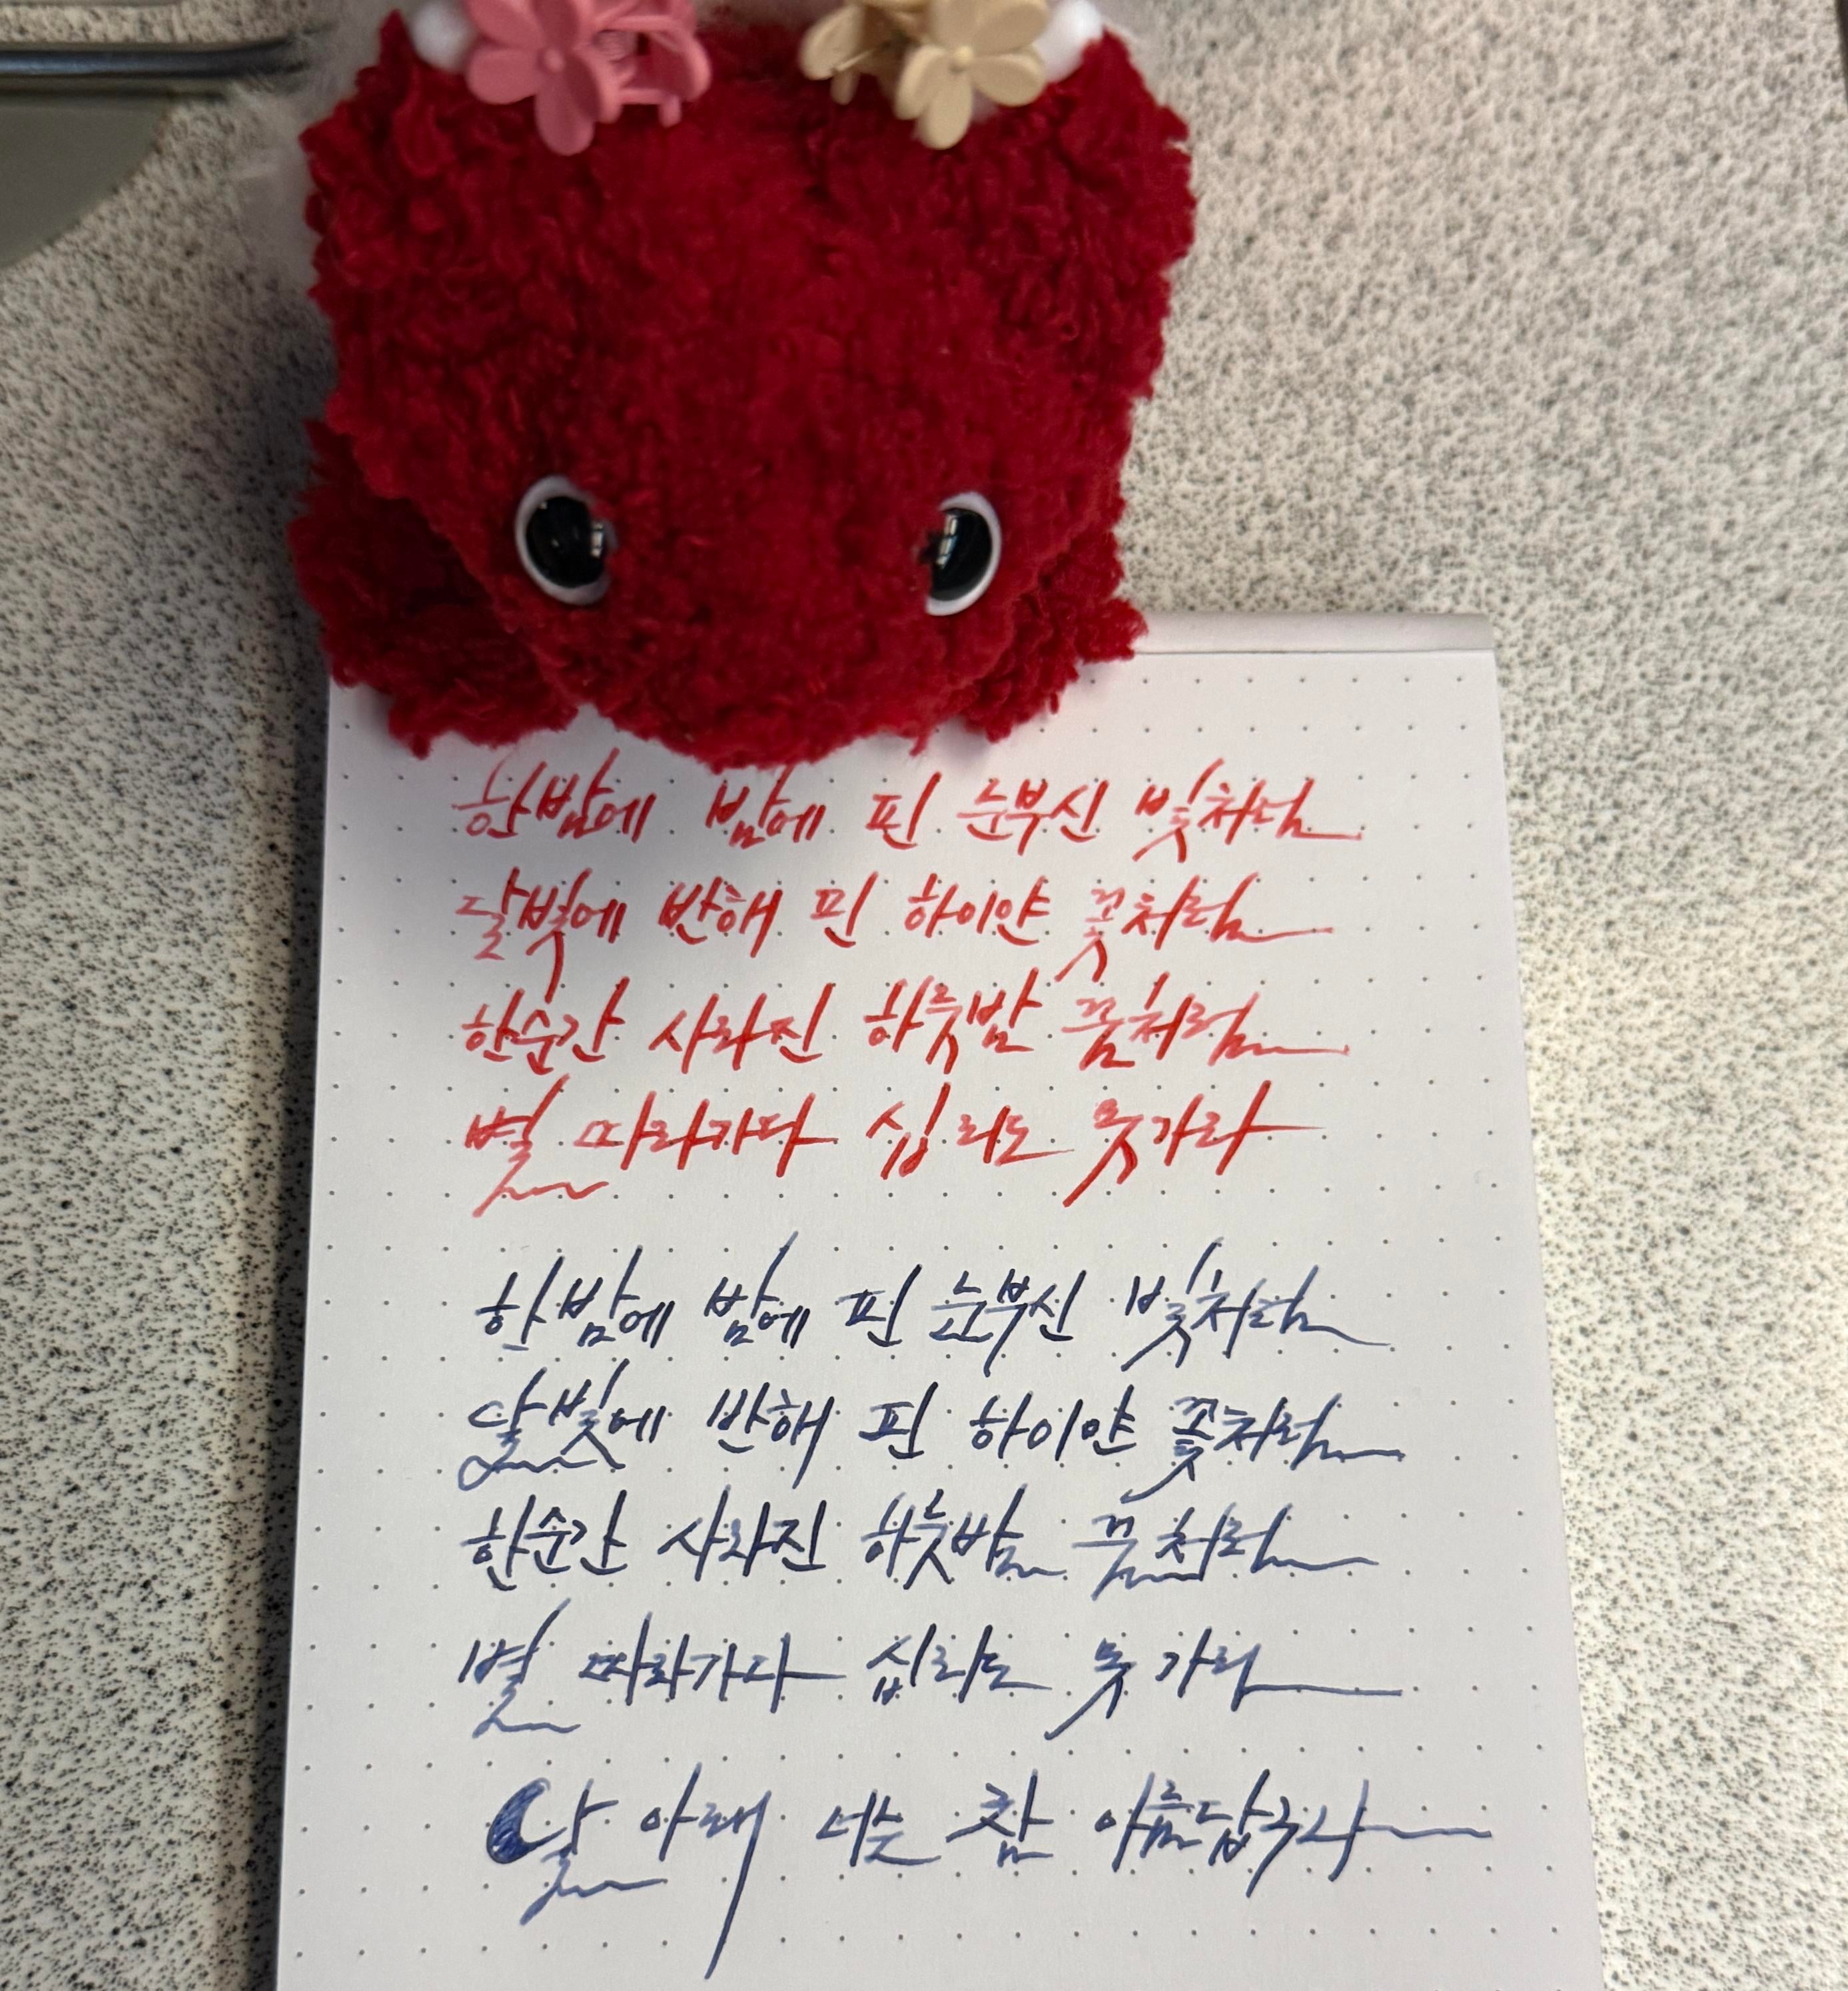 한밤에 밤에 핀 눈부신 빛처럼
달빛에 반해 핀 하이얀 꽃처럼
한순간 사라진 하룻밤 꿈처럼
별 따라가다 십리도 못가라
한밤에 밤에 핀 눈부신 빛처럼
달빛에 반해 핀 하이얀 꽃처럼
한순간 사라진 하룻밤 꿈처럼
별 따라가다 십리도 못 가라
달 아래 너는 참 아름답구나